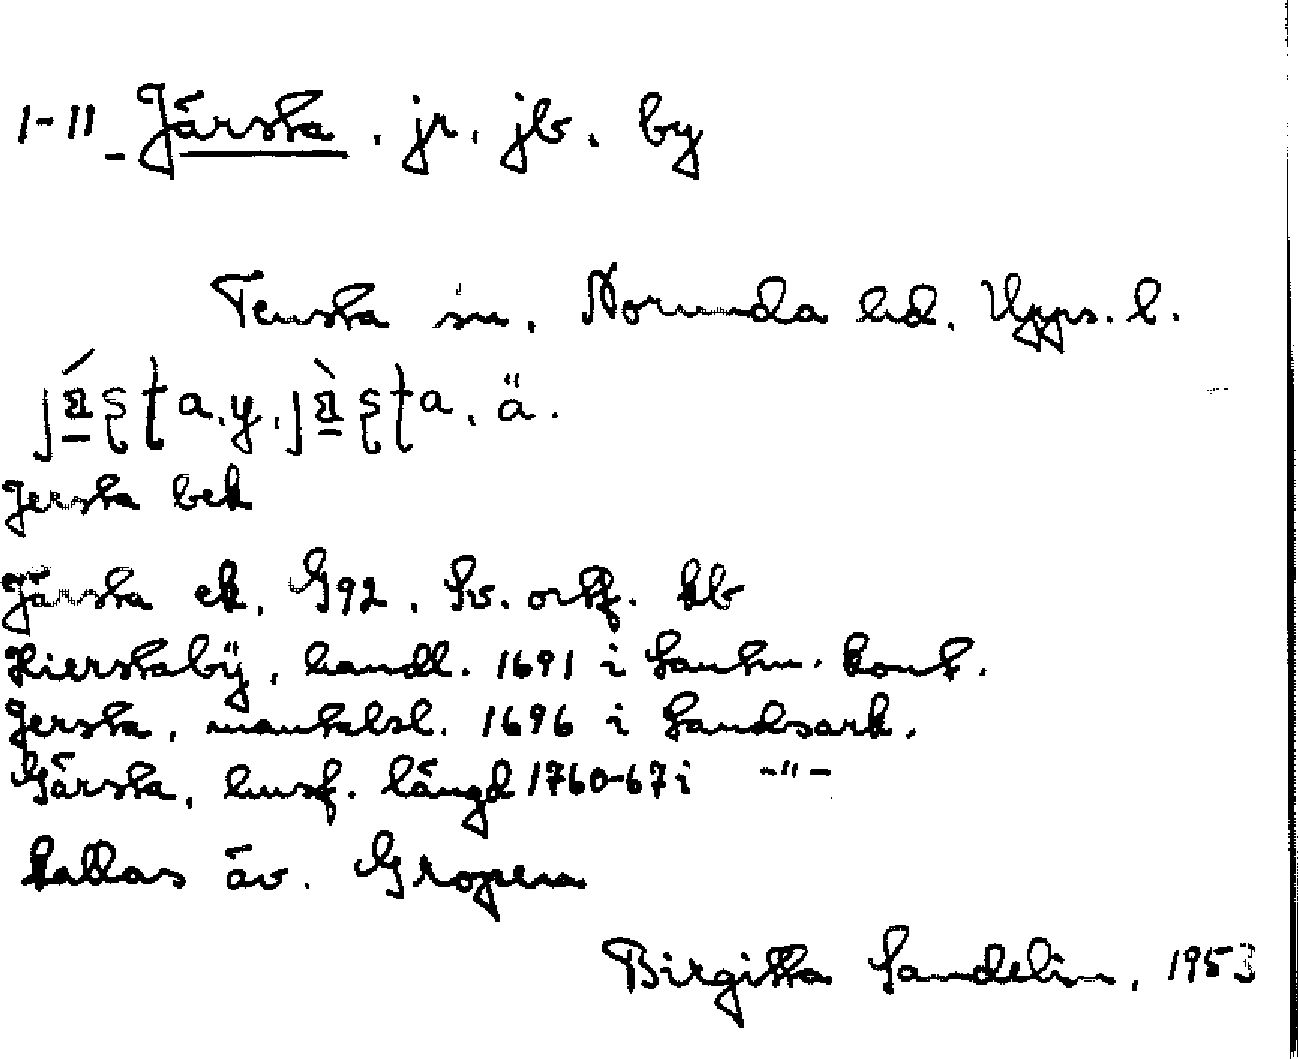 1-11 Järsta. jr. jb. by
Tensta sn. Norunda hd. Upps. l.
Jersta bek
Järsta ek. G92. Sv. ortf. kb
Hierstabÿ, handl. 1691 i Lantm. kont.
Jersta, mantalsl. 1696 i Landsark.
Gärsta, husf. längd 1760-67 i -"-
kallas äv. Gropen
Birgitta Sandelin, 1953